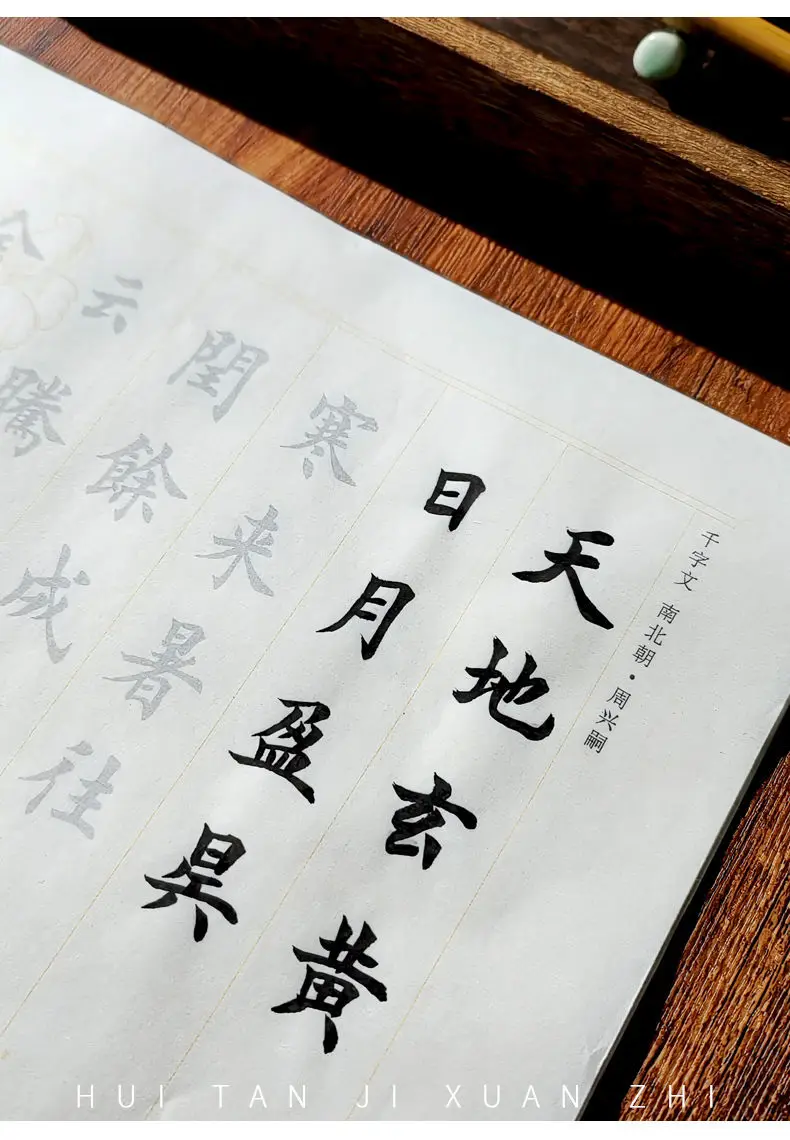 千字文 南北朝·周兴嗣
天地玄黄
日月盈昃
寒来暑往
閏餘成
云騰
HUI TAN JI XUAN ZHI